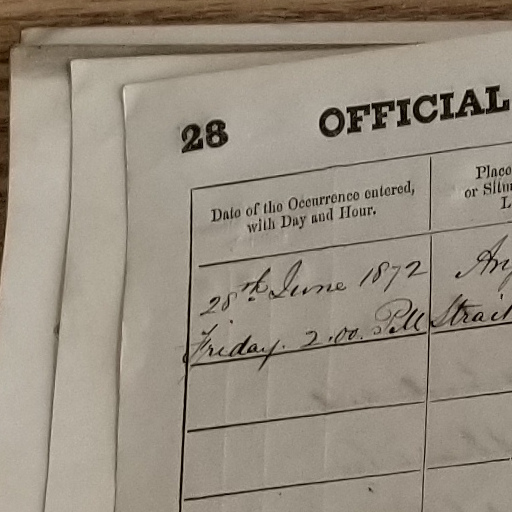 28 OFFICIAL
Date of the Occurrence entered,
with Day and Hour.
Place
or Situ
L
28th June 1872
Friday. 2.00. PM Strait